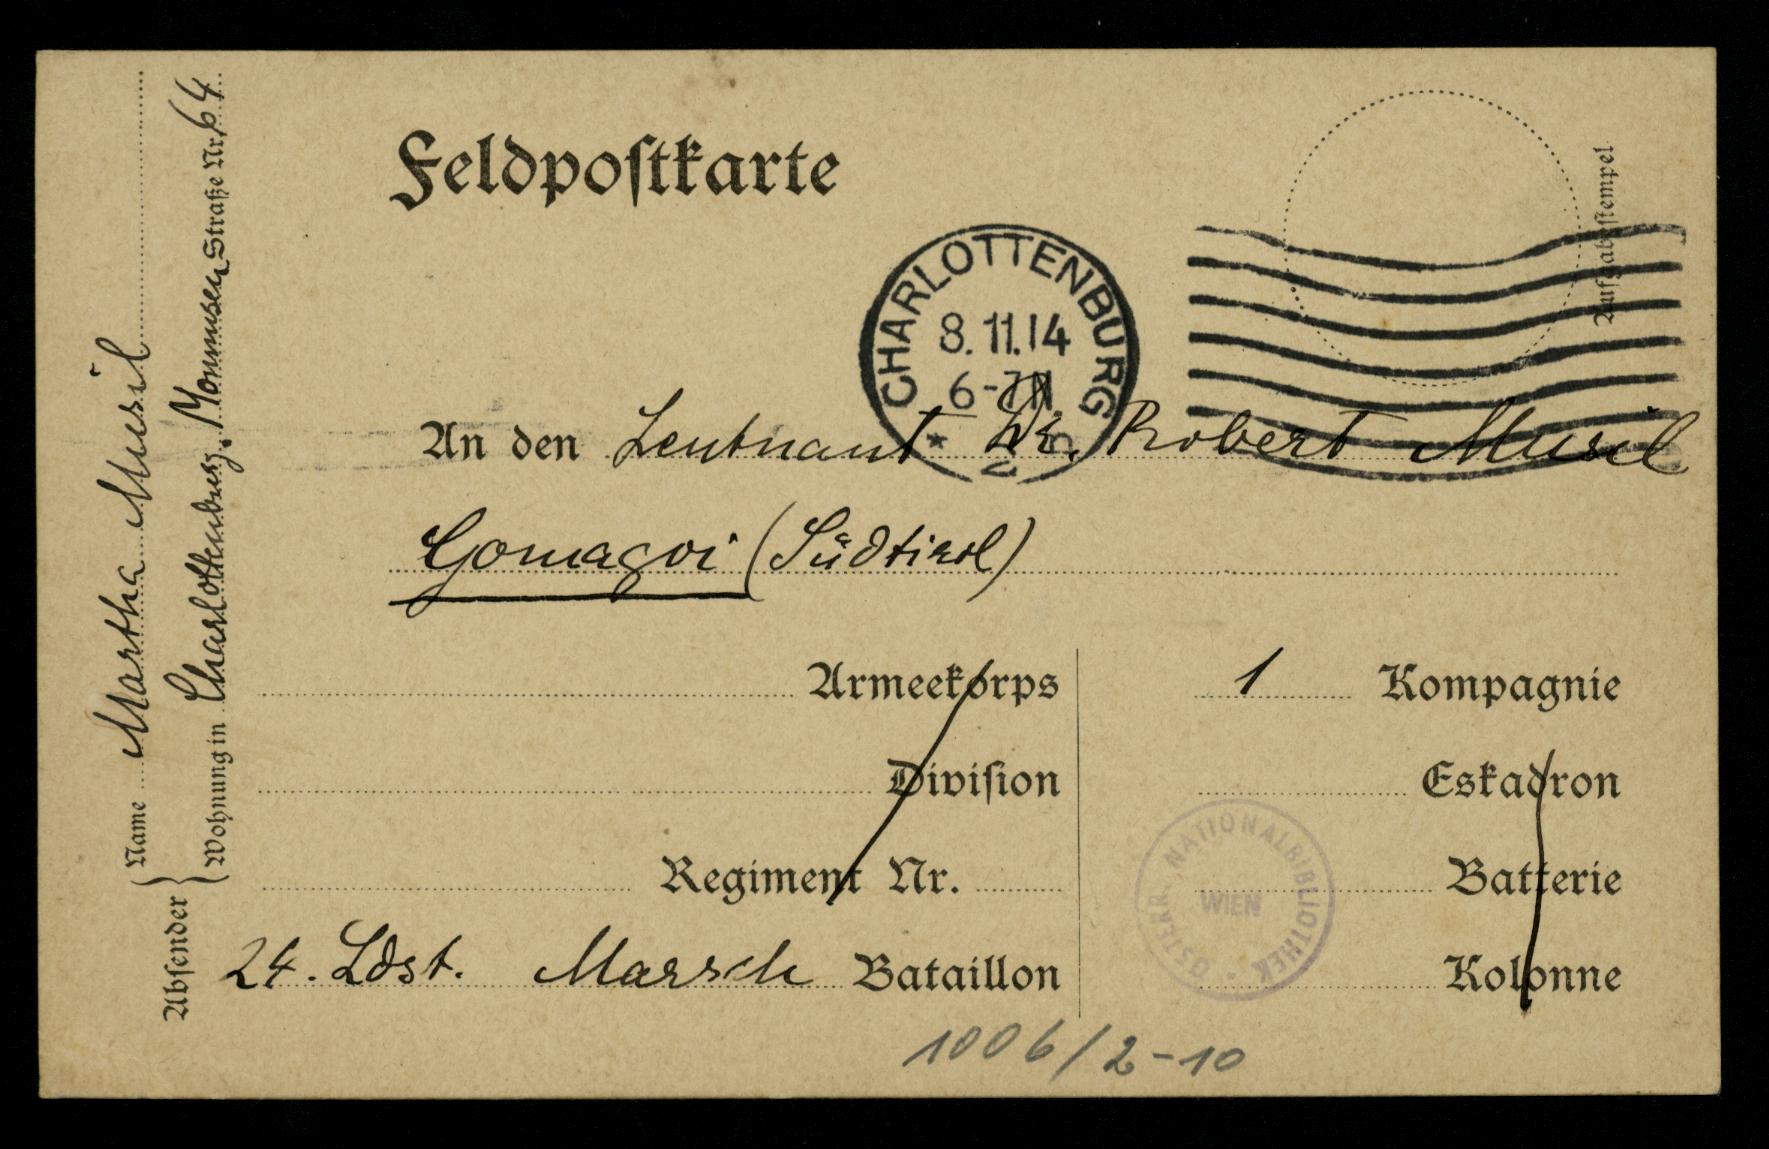 Feldpostkarte
Aufgabestempel
CHARLOTTENBURG
8.11.14
6-7N.
An den Leutnant Dr. Robert Musil
Gomagoi (Südtirol)
Armeekorps
Division
Regiment Nr.
24. Ldst. Marsch Bataillon
1 Kompagnie
Eskadron
Batterie
Kolonne
ÖSTERR. NATIONALBIBLIOTHEK
WIEN
1006/2-10
Absender
Name Martha Musil
Wohnung in Charlottenburg, Mommsen Straße Nr. 64